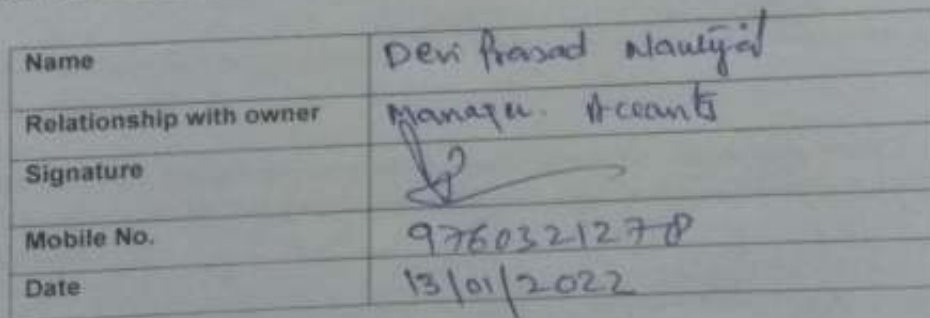 Name Devi Prasad Nautiyal
Relationship with owner Manager. Accounts
Signature
Mobile No. 9760321278
Date 13/01/2022